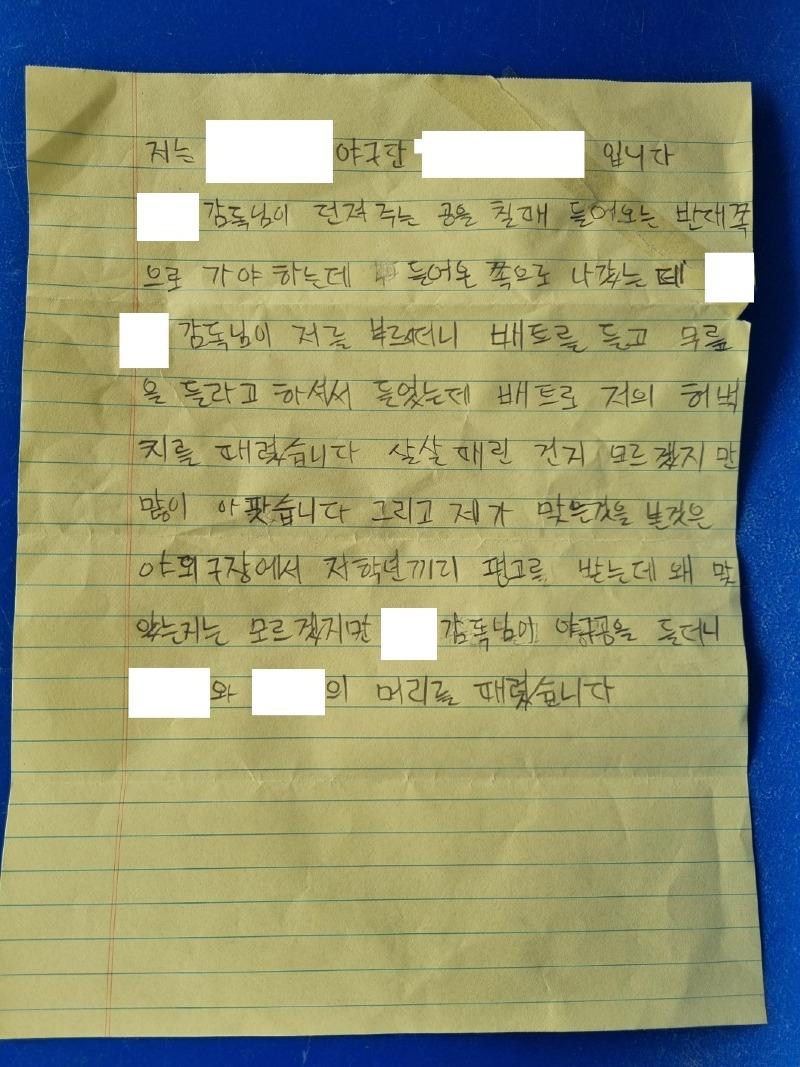 저는 야구단 입니다
감독님이 던져 주는 공을 칠때 들어오는 반대쪽
으로 가야 하는데 들어온 쪽으로 나갔는데
감독님이 저를 부르더니 배트를 들고 무릎
을 들라고 하셔서 들었는데 배트로 저의 허벅
지를 때렸습니다 살살 때린 건지 모르겠지만
많이 아팠습니다 그리고 제가 맞은것을 본것은
야외구장에서 저학년끼리 펑고를 받는데 왜 맞
았는지는 모르겠지만 감독님이 야구공을 들더니
와 의 머리를 때렸습니다